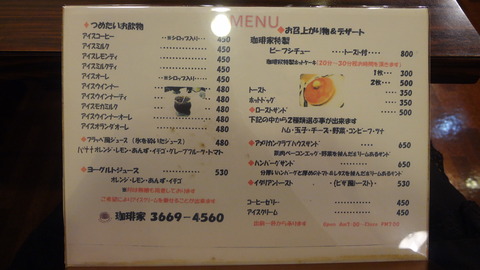 MENU
◆つめたいお飲物
アイスコーヒー ‥※シロップ入り‥ 450
アイスミルク 450
アイスレモンティ 450
アイスミルクティ 450
アイスオーレ ※シロップ入り‥ 450
アイスウインナー 480
アイスウインナーティ 480
アイスモカミルク 480
アイスウインナーオーレ 480
アイスオランダオーレ 480
◆フラッペ風ジュース (氷を砕いたジュース) 480
バナナ オレンジ・レモン・あんず・イチゴ・グレープフルーツ・トマト
◆ヨーグルトジュース 530
オレンジ・レモン・あんず・イチゴ
珈琲家 3669-4560
◆お召上がり物&デザート
珈琲家特製
ビーフシチュー トースト付 800
珈琲家特製ホットケーキ (20分~30分位お時間を頂きます)
1枚 300
2枚 500
トースト 350
ホットドッグ 350
◆ローストサンド 500
下記の中から2種類選ぶ事が出来ます
ハム・玉子・チーズ・野菜・コンビーフ・ツナ
◆アメリカンクラブハウスサンド 650
◆ハンバーグサンド 650
◆イタリアントースト (ピザ風トースト) 530
コーヒーゼリー 450
アイスクリーム 450